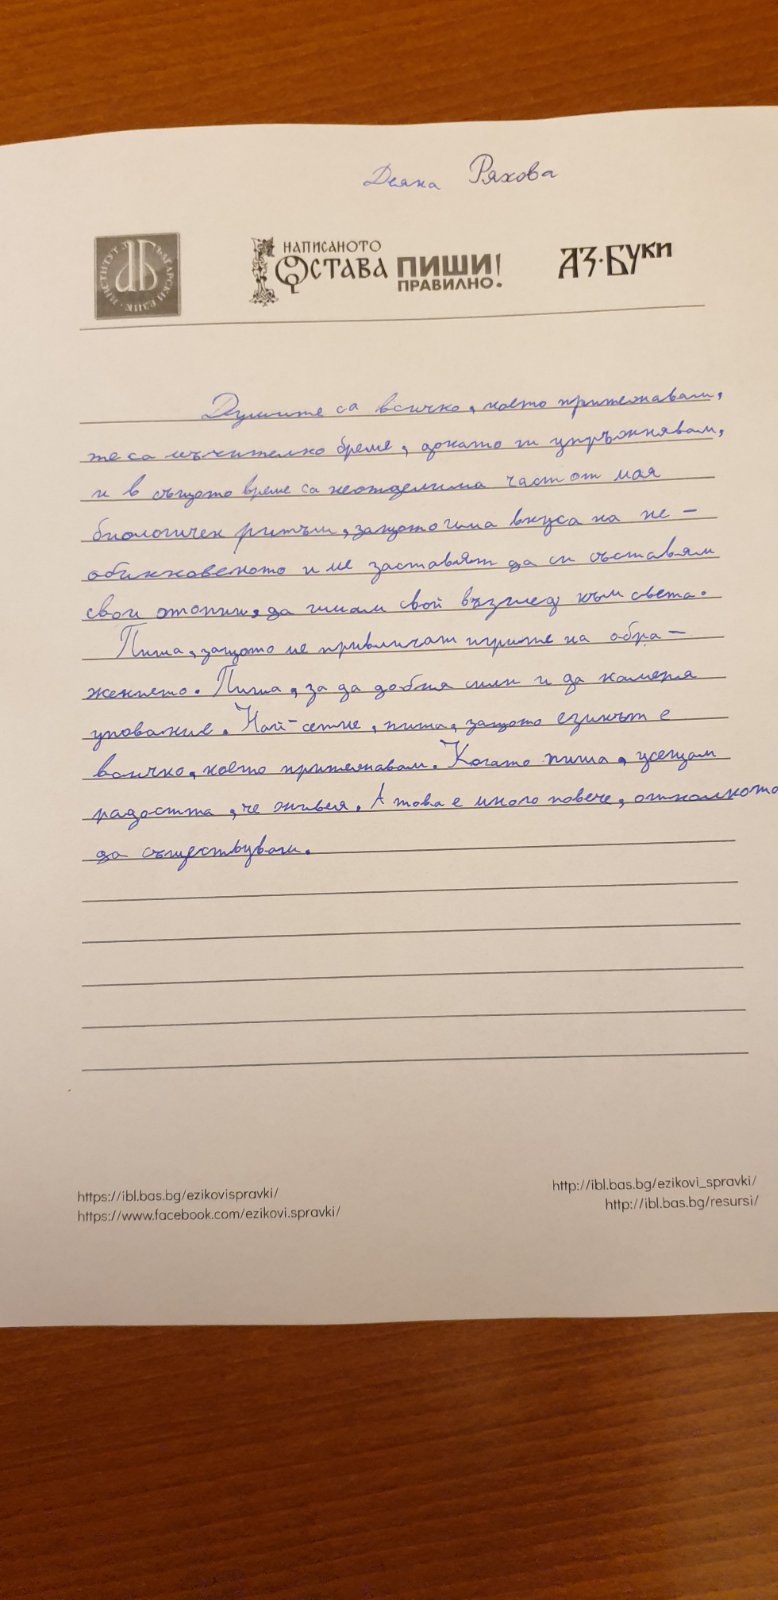 Деяна Ряхова
ИНСТИТУТ ЗА БЪЛГАРСКИ ЕЗИК
НАПИСАНОТО
ОСТАВА ПИШИ
ПРАВИЛНО!
АЗ·БУКИ
Думите са всичко, което притежавам,
те са мъчително бреме, докато ги упражнявам,
и в същото време са неотделима част от мая
биологичен ритъм, защото има вкуса на не-
обикновеното и ме заставят да си съставям
свои опопии, да имам свой възглед към света.
Пиша, защото ме привличат игрите на обра-
жението. Пиша, за да добия сили и да намеря
упование. Най-сетне, пиша, защото езикът е
всичко, което притежавам. Когато пиша, усещам
радостта, че живея. А това е много повече, отколкото
да съществувам.
https://ibl.bas.bg/ezikovispravki/
https://www.facebook.com/ezikovi.spravki/
http://ibl.bas.bg/ezikovi_spravki/
http://ibl.bas.bg/resursi/